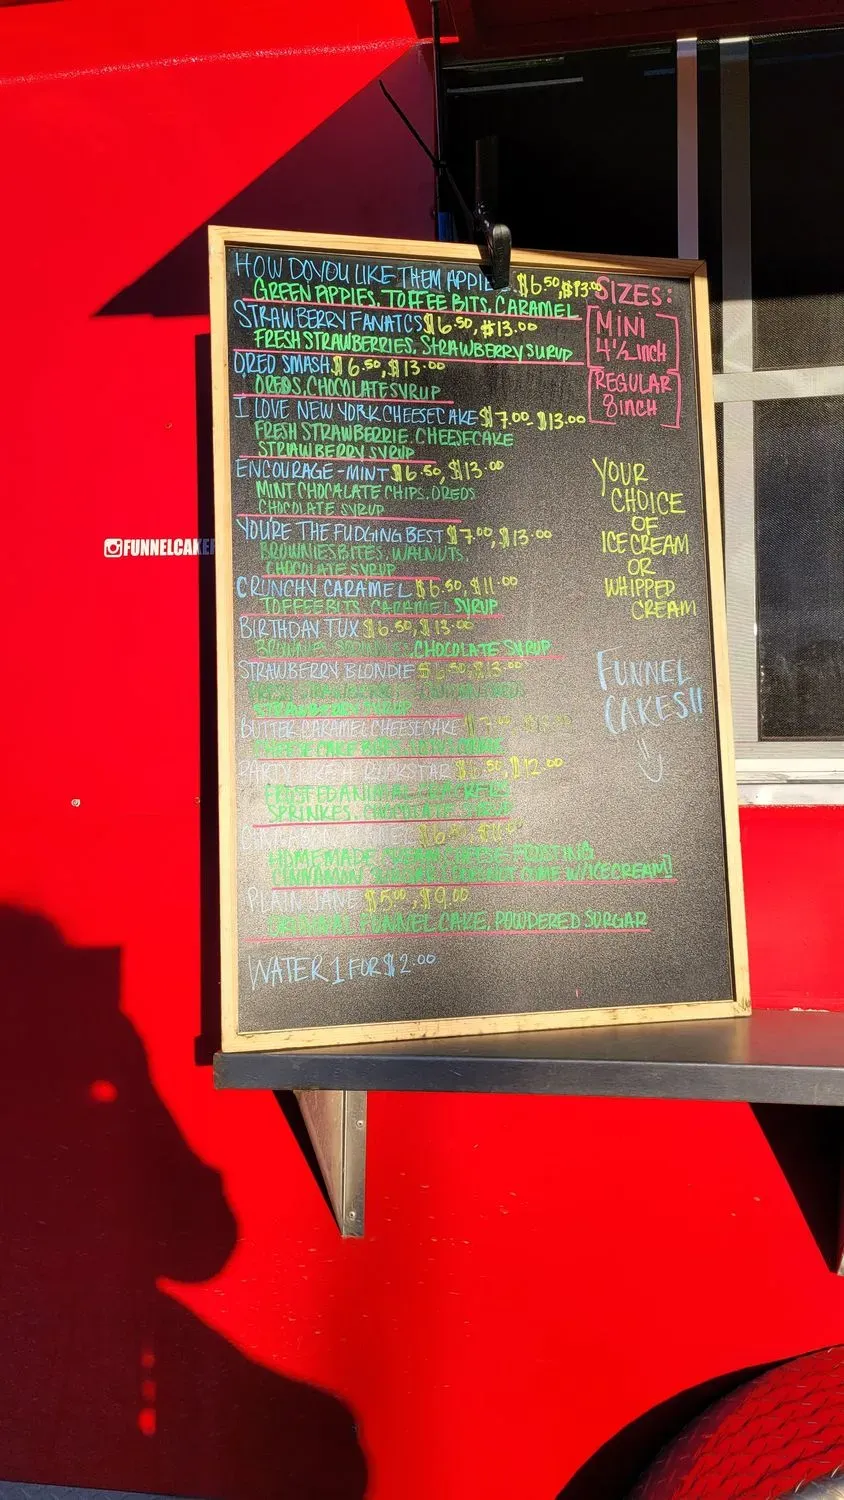 HOW DO YOU LIKE THEM APPLE $6.50, $13.00
GREEN APPLES, TOFFEE BITS, CARAMEL
STRAWBERRY FANATCS $6.50, $13.00
FRESH STRAWBERRIES, STRAWBERRY SURUP
OREO SMASH $6.50, $13.00
OREOS, CHOCOLATE SYRUP
I LOVE NEW YORK CHEESECAKE $7.00 - $13.00
FRESH STRAWBERRIE, CHEESECAKE
STRAWBERRY SYRUP
ENCOURAGE-MINT $6.50, $13.00
MINT CHOCALATE CHIPS, OREOS
CHOCOLATE SYRUP
YOU'RE THE FUDGING BEST $7.00, $13.00
BROWNIES BITES, WALNUTS,
CHOCOLATE SYRUP
CRUNCHY CARAMEL $6.50, $11.00
TOFFEE BITS, CARAMEL SYRUP
BIRTHDAY TUX $6.50, $13.00
BROWNIES, SPRINKLES, CHOCOLATE SYRUP
STRAWBERRY BLONDIE $6.50, $13.00
FRESH STRAWBERRIES, OREOS
STRAWBERRY SYRUP
BUTTER CARAMEL CHEESECAKE $7.00
CHEESECAKE BITES,
PARTY LIKE A ROCKSTAR $6.50, $12.00
FROSTED ANIMAL CRACKERS
SPRINKES, CHOCOLATE SYRUP
$6.50,
HOMEMADE CREAM CHEESE FROSTING
CINNAMON SUGAR W/ICECREAM!!
PLAIN JANE $5.00, $9.00
ORIGINAL FUNNEL CAKE, POWDERED SURGAR
WATER 1 FOR $2.00
SIZES:
MINI
4½ INCH
REGULAR
8 INCH
YOUR
CHOICE
OF
ICE CREAM
OR
WHIPPED
CREAM
FUNNEL
CAKES!!
FUNNELCAKE